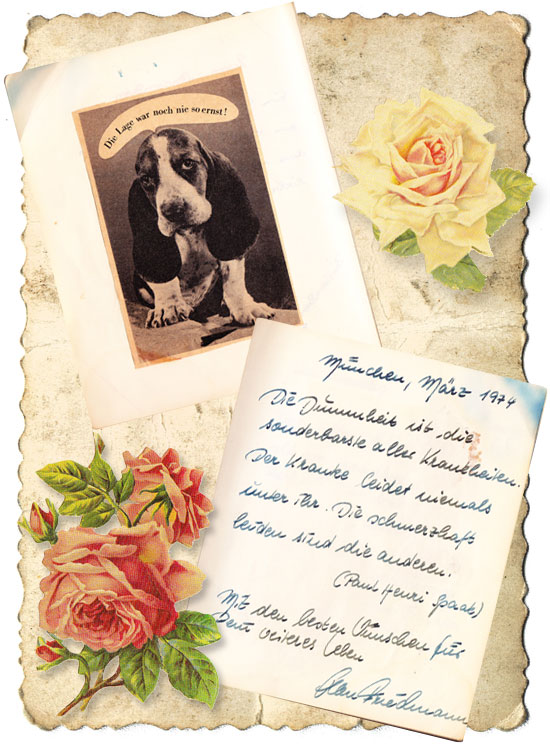 Die Lage war noch nie so ernst!
München, März 1974
Die Dummheit ist die
sonderbarste aller Krankheiten.
Der Kranke leidet niemals
unter ihr. Die schmerzhaft
leiden sind die anderen.
(Paul Henri Spaak)
Mit den besten Wünschen für
Dein weiteres Leben
Friedmann